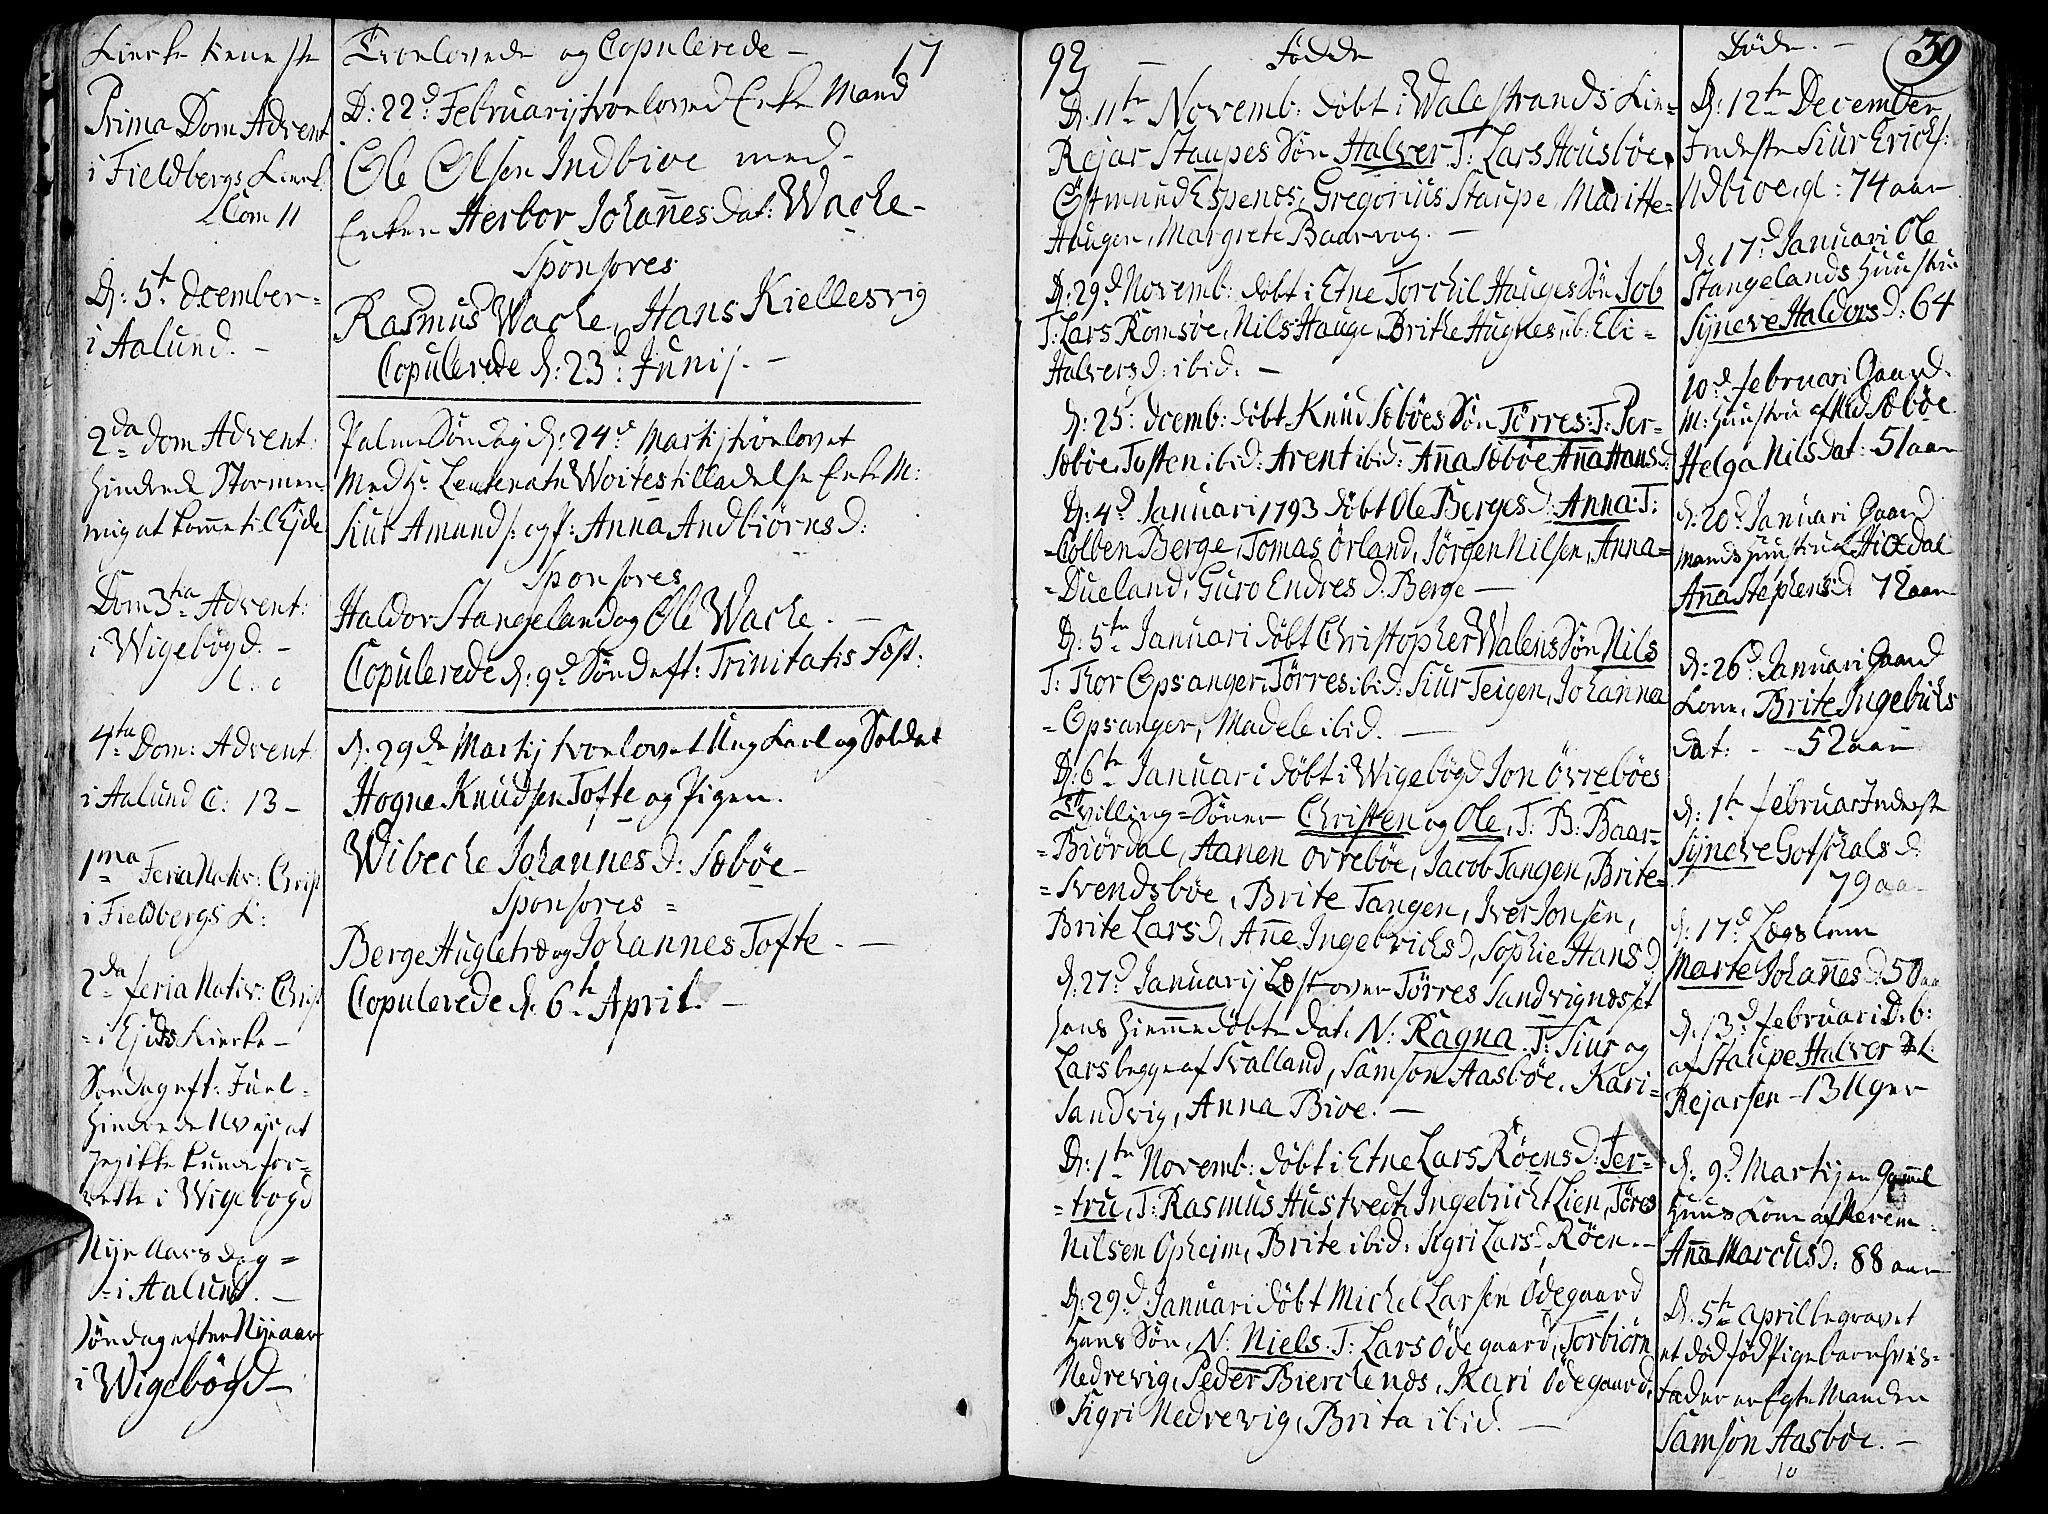 Kirke tieneste
Prima Dom Advent
i Fieldbergs Kirk.
Com 11
D: 5te December
i Aalund. –
2da Dom Advent:
hindrede Stormen
mig at komme til Ejde
Dom 3tia Advent:
i Wigebøgd. –
C: 0
4ta Dom: Advent
i Aalund C: 13 –
1ma Feria Nativ: Christ
i Fieldbergs K:
2da feria Nativ: Christ
= i Ejds Kierke –
Søndag eft: Juel –
hindrede Uveje at
jeg ikke kunde for=
rette i Wigebøgd
Nye Aars dag =
= i Aalund. –
Søndag efter Nye aar
i Wigebøgd –
Trolovede og Copulerede – 17
D: 22d Februarij troloved Enke Mand
Ole Olsen Indbioe med
Enken Herbor Johannes Dat: Wacke –
Sponsores
Rasmus Wacke, Hans Kiellesvig
Copulerede d: 23d Junij. –
Palme Søndag d: 24de Martij trolovet
Med Hr Leutenatn Woites tilladelse Enke M:
Siur Amunds: og P: Anna Andbiørns D:
Sponsores
Haldor Stangeland og Ole Wacke. –
Copulerede d: 9d Sønd eft: Trinitatis Fest:
d. 29de Martij trolovet Ung Karl og Soldat
Hogne Knudsen Tofte og Pigen.
Wibecke Johannes D: Sæbøe –
Sponsores =
Berge Hugletræ og Johannes Tofte. –
Copulerede d. 6te April. –
92 – Fødde
D. 11te Novemb: døbt i Walestrands Kir=
Rejar Staupes Søn Halver T: Lars Housbøe,
Østmund Espenes, Gregorius Staupe, Maritte=
Haugen, Margrete Baarvog. –
D: 29d Novemb: døbt i Etne Torchil Hauges Søn Job
T: Lars Romsøe, Nils Hauge, Brithe Hugnes, ib: Eli=
Halvers D: ibid. –
d: 25: Decemb: døbt Knud Sæbøes Søn Tørres: T: Per=
Sæbøe, Tosten ibid: Arent ibid: Anna Sæbøe Anna Hans d:
D: 4d Januari 1793 døbt Ole Berges D: Anna: T:
=Colben Berge, Tomas Ørland, Jørgen Nilsen, Anna=
=Dueland, Guro Endres D: Berge –
D: 5te Januari døbt Christopher Walens Søn Nils
T: Thor Opsanger, Tørres ibid: Siur Teigen, Johanna
=Opsanger, Madele ibid. –
D: 6te Januari døbt i Wigebøgd Jon Øvrebøes
Tvilling=Sønner Christen og Ole, T: B: Baar=
=Biørdal, Aanen Ovrebøe, Jacob Tangen, Brite=
=Svendsbøe, Brite Tangen, Iver Jonsen,
Brite Lars D, Anne Ingebrichs D, Sophie Hans D
d: 27d Januarij Læst over Tørres Sandvignesset
hans hiemme døbte Dat: N: Ragna T: Siur og
Lars begge af Svalland, Samson Aasbøe, Kari=
Sandvig, Anna Bioe. –
D: 1te Novemb: døbt i Etne Lars Røens D: Ter=
=tru, T: Rasmus Hustvedt, Ingebricht Lien, Tøres
Nilsen Opheim, Brite ibid: Sigri Lars D Røen. –
D: 29d Januari døbt Michel Larsen Ødegaard
Hans Søn, N: Niels. T: Lars Ødegaard, Torbiørn
Nedrevig, Peder Bierclenes, Kari Ødegaard,
Sigri Nedrevig, Brita ibid. –
Døde. – 39
D: 12te December
Inderste Siur Erichs:
Udbioe, gl: 74 aar
d: 17d Januari Ole
Stangelands Hustru
Synneve Haldors D: 64
10d februari Gaard
M: Hustru af Sæbøe
Helga Nils dat: 51 aar
d: 20d Januari Gaard
mands Hustru
Anna Stephens D 72 aar
d: 26d Januari Gaard
Kone, Brite Ingebrichs
dat: – – 52 aar
d: 1te februar Inderste
Synneve Gotschals D:
79 aa
d: 17d Lægs lem
Marte Johannes D: 50 aa
d: 13d februari D: b:
af Staupe Halver
Rejarsen – 13 Uger
d: 9d Martij en Gamel
Huus Kone af
Anna Marcus D: 88 aar
D: 5te April begravet
et død fød Pigebarn hvis=
Fader er Egte Manden
Samson Aasbøe. –